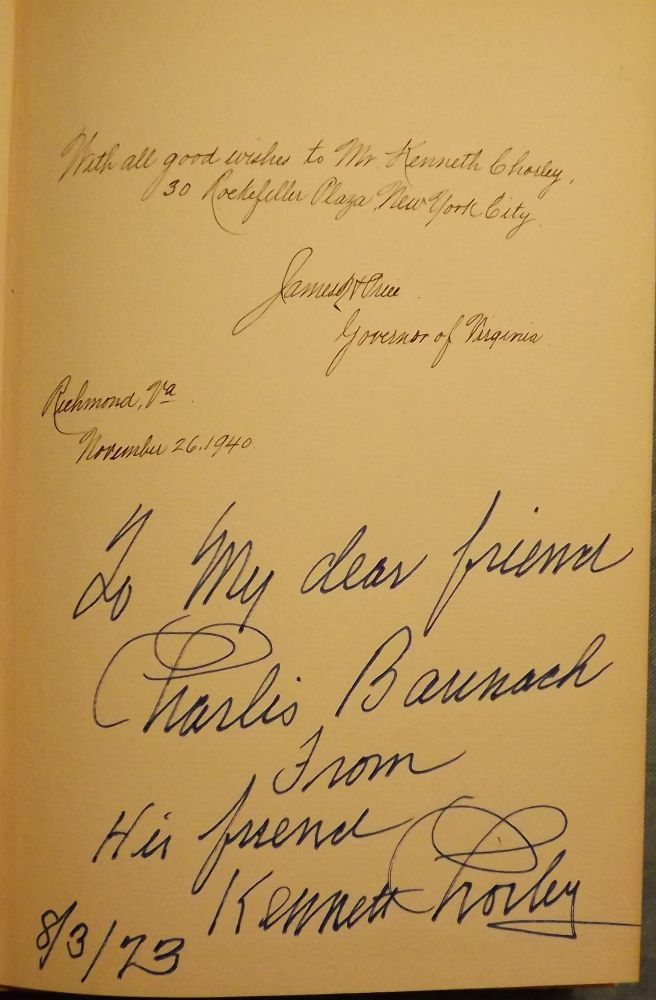 With all good wishes to Mr. Kenneth Chorley,
30 Rockefeller Plaza, New York City.
James H Price
Governor of Virginia
Richmond, Va
November 26, 1940
To My dear friend
Charlis Baunach
From
His friend
Kenneth Chorley
8/3/73